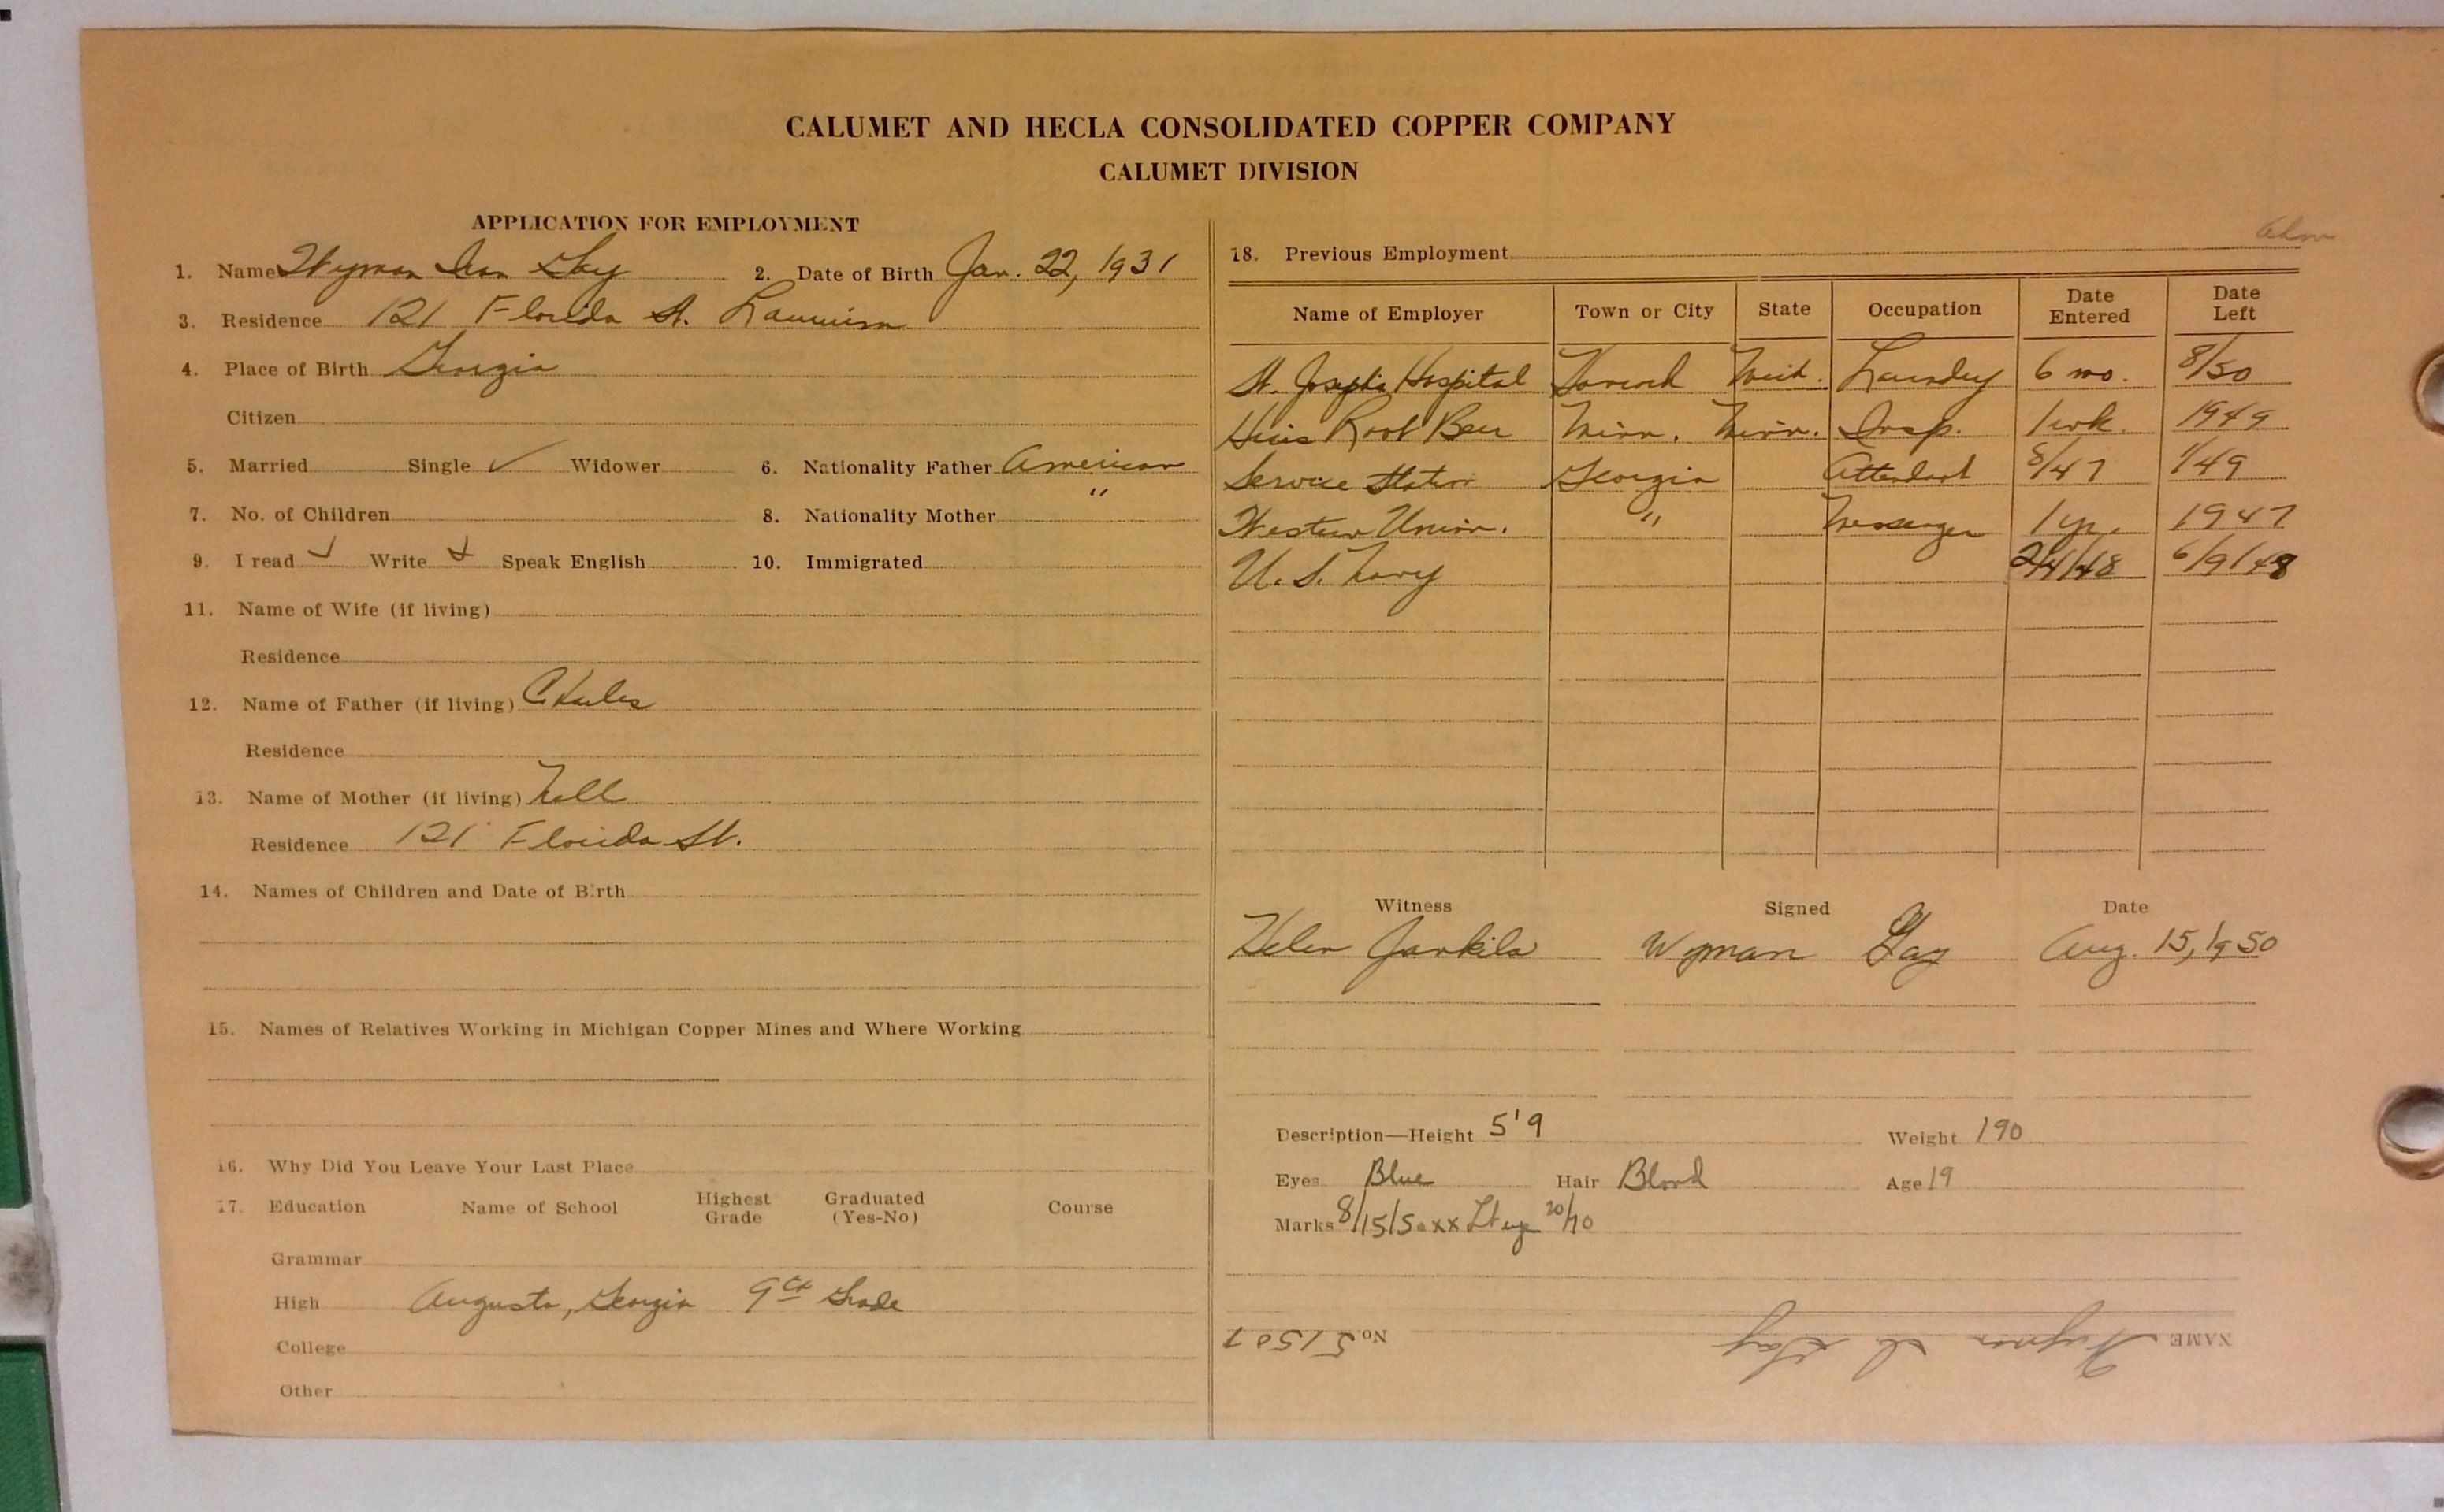 CALUMET AND HECLA CONSOLIDATED COPPER COMPANY
CALUMET DIVISION
APPLICATION FOR EMPLOYMENT
1. Name Wyman Ira Gay 2. Date of Birth Jan. 22, 1931
3. Residence 121 Florida St. Laurium
4. Place of Birth Georgia
Citizen
5. Married Single ✓ Widower 6. Nationality Father American
7. No. of Children 8. Nationality Mother "
9. I read ✓ Write ✓ Speak English 10. Immigrated
11. Name of Wife (if living)
Residence
12. Name of Father (if living) Charles
Residence
13. Name of Mother (if living) Nell
Residence 121 Florida St.
14. Names of Children and Date of Birth
15. Names of Relatives Working in Michigan Copper Mines and Where Working
16. Why Did You Leave Your Last Place
17. Education Name of School Highest Grade Graduated (Yes-No) Course
Grammar
High Augusta, Georgia 9th Grade
College
Other
18. Previous Employment
Name of Employer Town or City State Occupation Date Entered Date Left
St. Josephs Hospital Hancock Mich. Laundry 6 mo. 8/50
Hires Root Beer Minn. Minn. Insp. 1 wk. 1949
Service Station Georgia Attendant 8/47 1/49
Western Union. " Messenger 1 yr. 1947
U. S. Navy 2/4/48 6/9/48
Witness Signed Date
Helen Jarkila Wyman Gay Aug. 15, 1950
Description—Height 5'9 Weight 190
Eyes Blue Hair Blond Age 19
Marks 8/15/50 xx Lt eye 20/70
NAME Wyman I. Gay No. 51507